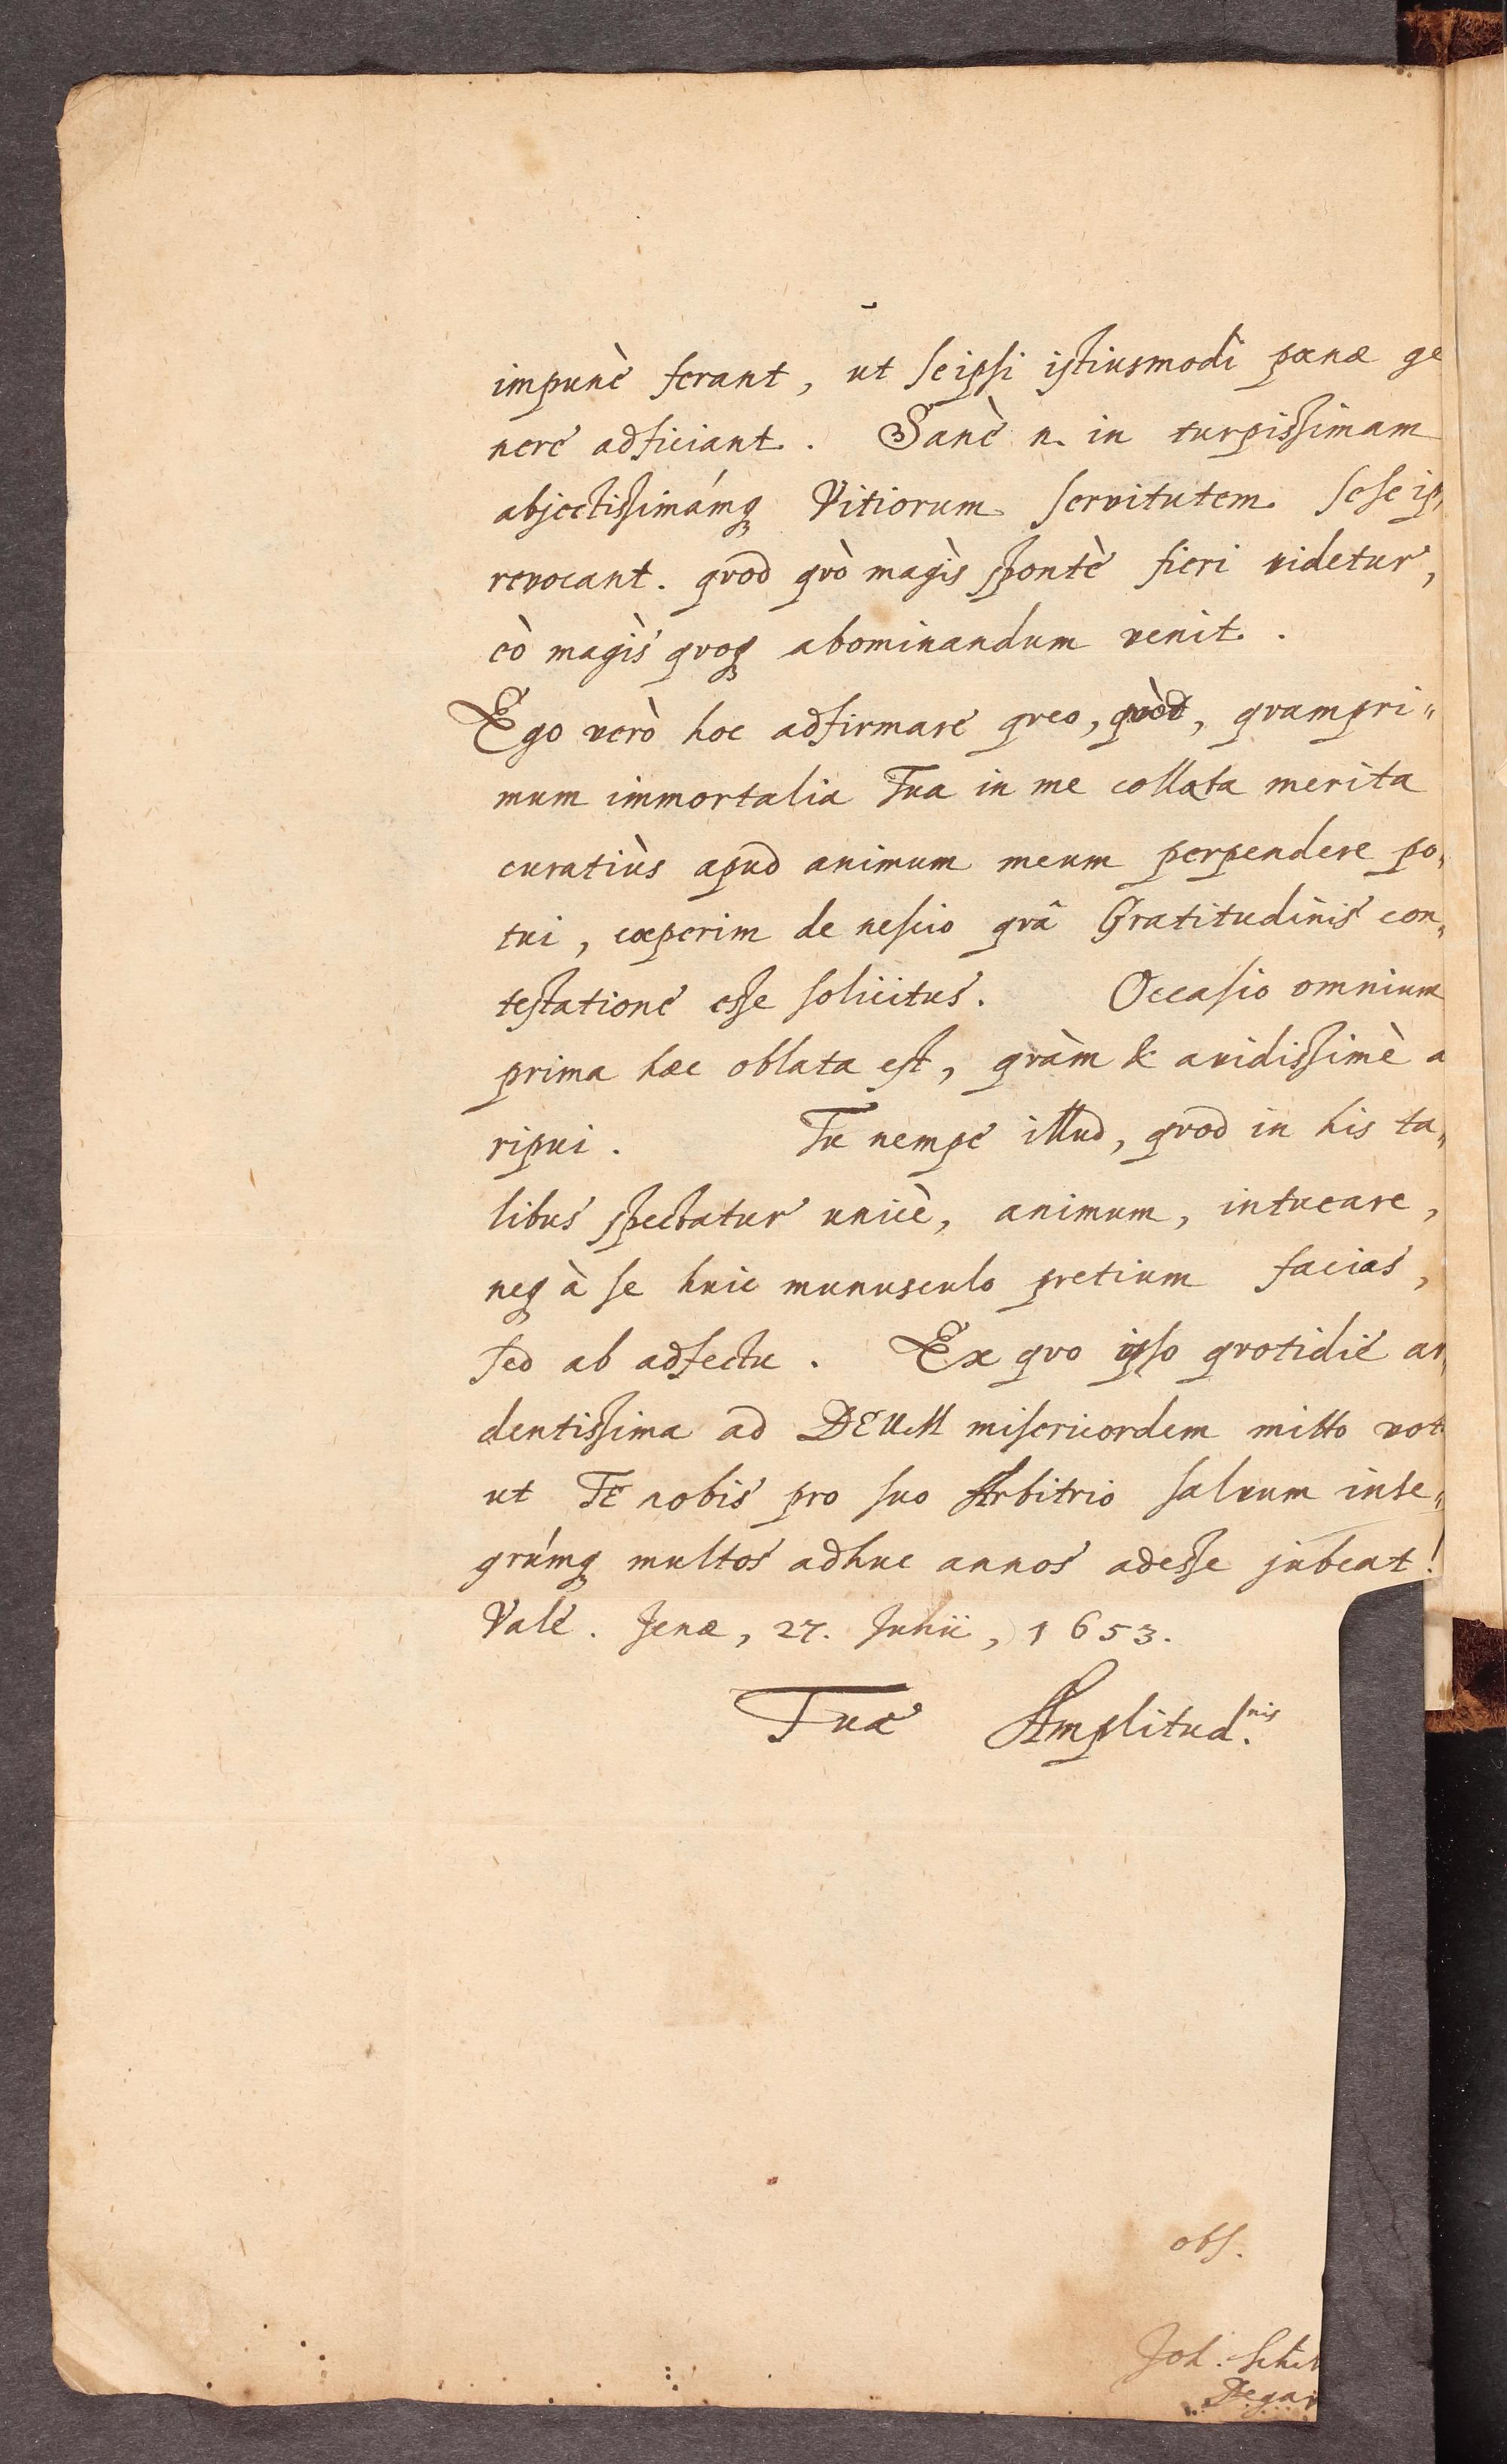 impunè ferant, ut seipsi istiusmodi pœnæ ge
nere adficiant. Sanè n. in turpissimam
abjectissimámq́ Vitiorum servitutem sese ip
revocant. qvod qvò magìs spontè fieri videtur,
eò magìs qvoq́ abominandum venit.
Ego verò hoc adfirmare qveo, qvòd, qvampri„
mum immortalia Tua in me collata merita
curatiùs apud animum meum perpendere po„
tui, cœperim de nescio qvâ Gratitudinis con„
testatione esse solicitus. Occasio omnium
prima hæc oblata est, qvàm & avidissimè a
ripui. Tu nempe illud, qvod in his ta„
libus spectatur unicè, animum, intueare,
neq́ à se huic munusculo pretium facias,
sed ab adfectu. Ex qvo ipso qvotidie ar„
dentissima ad DEUM misericordem mitto vot
ut TE nobis pro suo Arbitrio salvum inte„
grúmq́ multos adhuc annos adesse jubeat!
Vale. Jenæ, 27. Junii, 1653.
Tuæ Amplitud.nis
obs.
Joh.